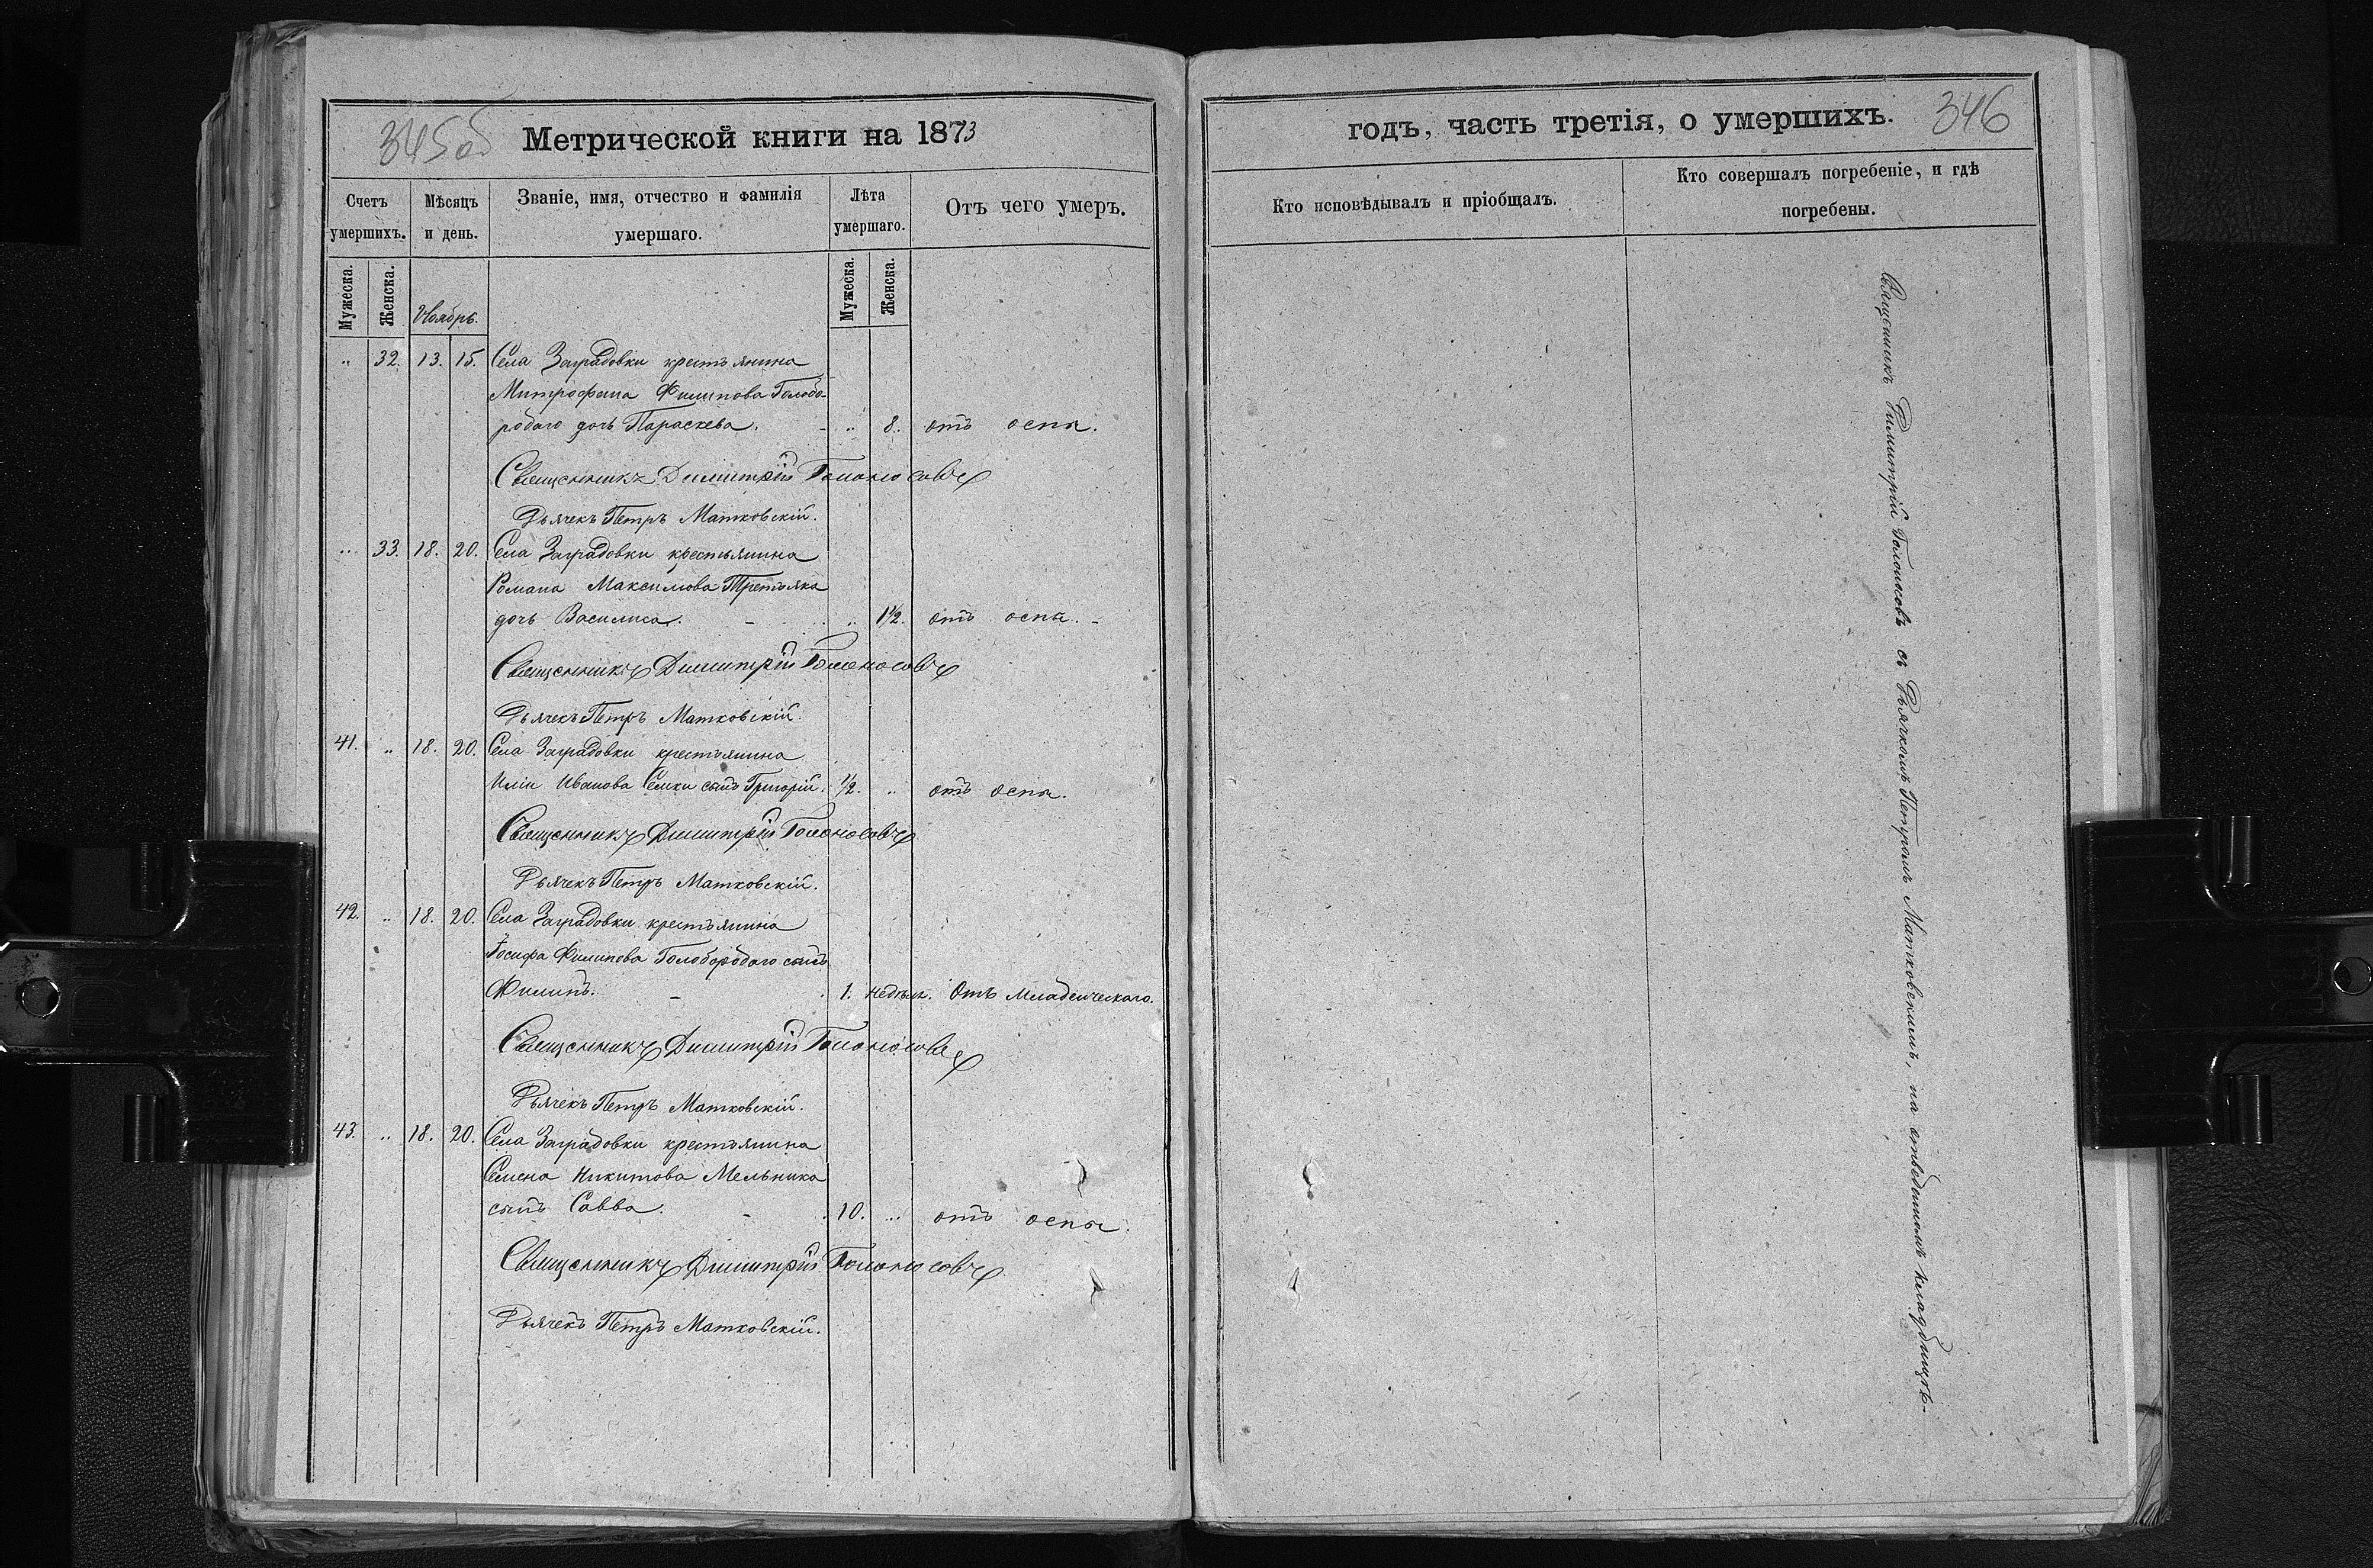 345об
Метрической книги на 1873
Счетъ умершихъ.
Мѣсяцъ и день.
Званіе, имя, отчество и фамилія умершаго.
Лѣта умершаго.
Отъ чего умеръ.
Мужеска.
Женска.
Ноябрь.
Мужеска.
Женска.
„ 32. 13. 15. Села Заградовки крестьянина
Митрофана Филипова Голобо-
родаго дочь Параскева. - „ 8. отъ оспы.
Священникъ Димитрій Голоносовъ
Дьячекъ Петръ Матковскій.
„ 33. 18. 20. Села Заградовки крестьянина
Романа Максимова Третьяка
дочь Василиса. - „ 1½. отъ оспы. -
Священникъ Димитрій Голоносовъ
Дьячекъ Петръ Матковскій.
41. „ 18. 20. Села Заградовки крестьянина
Иліи Иванова Семки сынъ Григорій. ½. „ отъ оспы.
Священникъ Димитрій Голоносовъ
Дьячекъ Петръ Матковскій.
42. „ 18. 20. Села Заградовки крестьянина
Іосифа Филипова Голобородаго сынъ
Филипъ. - 1. недѣли. Отъ младенческаго.
Священникъ Димитрій Голоносовъ
Дьячекъ Петръ Матковскій.
43. „ 18. 20. Села Заградовки крестьянина
Семена Никитова Мельника
сынъ Савва. - 10. „ отъ оспы.
Священникъ Димитрій Голоносовъ
Дьячекъ Петръ Матковскій.
годъ, часть третія, о умершихъ.
346
Кто исповѣдывалъ и пріобщалъ.
Кто совершалъ погребеніе, и гдѣ
погребены.
Священникъ Димитрій Голоносовъ съ Дьячкомъ Петромъ Матковскимъ, на отведенномъ кладбищѣ.-